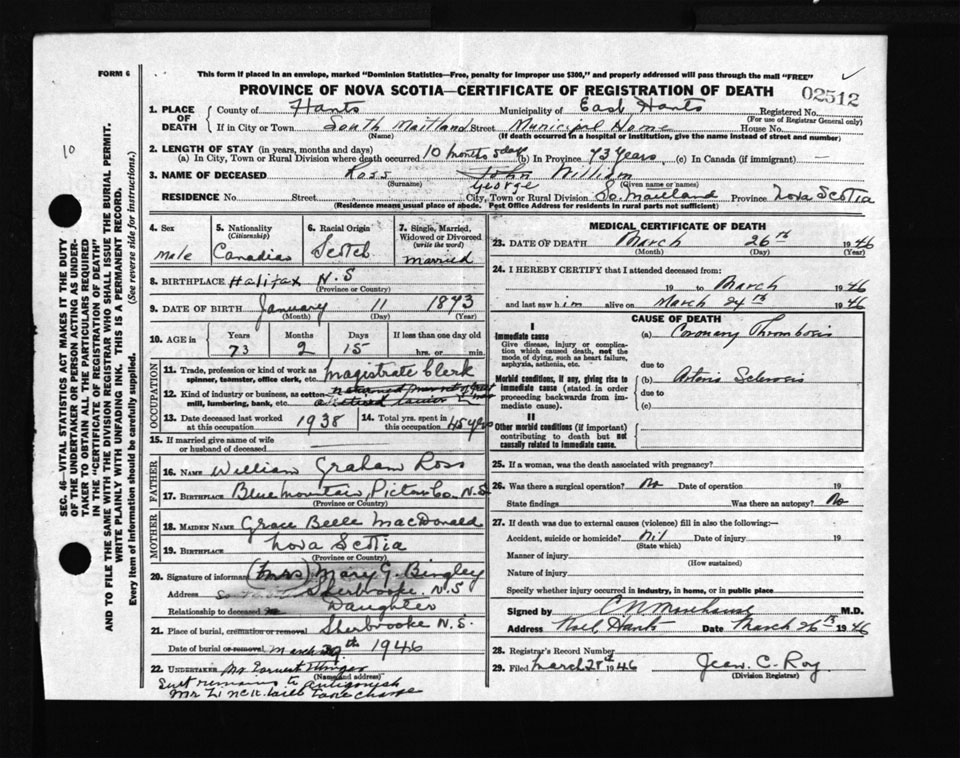 FORM 6
This form if placed in an envelope, marked "Dominion Statistics—Free, penalty for improper use $300," and properly addressed will pass through the mail "FREE"
PROVINCE OF NOVA SCOTIA—CERTIFICATE OF REGISTRATION OF DEATH
02512
1. PLACE OF DEATH
County of Hants Municipality of East Hants Registered No.
(For use of Registrar General only)
If in City or Town South Maitland Street Municipal Home House No.
(Name) (If death occurred in a hospital or institution, give the name instead of street and number)
2. LENGTH OF STAY (in years, months and days)
(a) In City, Town or Rural Division where death occurred 10 months 5 days (b) In Province 73 years (c) In Canada (if immigrant) —
3. NAME OF DECEASED Ross John William
(Surname) George (Given name or names)
RESIDENCE No. Street City, Town or Rural Division So. Maitland Province Nova Scotia
(Residence means usual place of abode. Post Office Address for residents in rural parts not sufficient)
10
SEC. 46—VITAL STATISTICS ACT MAKES IT THE DUTY
OF THE UNDERTAKER OR PERSON ACTING AS UNDER-
TAKER TO OBTAIN ALL THE PARTICULARS REQUIRED
IN THE "CERTIFICATE OF REGISTRATION OF DEATH"
AND TO FILE THE SAME WITH THE DIVISION REGISTRAR WHO SHALL ISSUE THE BURIAL PERMIT.
WRITE PLAINLY WITH UNFADING INK. THIS IS A PERMANENT RECORD.
Every item of information should be carefully supplied. (See reverse side for instructions.)
4. Sex Male
5. Nationality (Citizenship) Canadian
6. Racial Origin Scotch
7. Single, Married, Widowed or Divorced (write the word) Married
8. BIRTHPLACE Halifax N.S
(Province or Country)
9. DATE OF BIRTH January 11 1873
(Month) (Day) (Year)
10. AGE in Years Months Days If less than one day old
73 2 15 hrs. or min.
OCCUPATION
11. Trade, profession or kind of work as Magistrate Clerk
spinner, teamster, office clerk, etc.
12. Kind of industry or business, as cotton
mill, lumbering, bank, etc.
13. Date deceased last worked at this occupation 1938
14. Total yrs. spent in this occupation 45 yrs
15. If married give name of wife
or husband of deceased.
FATHER
16. NAME William Graham Ross
17. BIRTHPLACE Blue Mountain, Pictou Co. N.S.
(Province or Country)
MOTHER
18. MAIDEN NAME Grace Belle MacDonald
19. BIRTHPLACE Nova Scotia
(Province or Country)
20. Signature of informant (Mrs) Mary G. Bingley
Address Sherbrooke N.S
Relationship to deceased Daughter
21. Place of burial, cremation or removal Sherbrooke N.S.
Date of burial or removal March 29th 1946
22. UNDERTAKER Mr Earnest
(Name and address)
Sent remains to Antigonish
Mr will take charge
MEDICAL CERTIFICATE OF DEATH
23. DATE OF DEATH March 26th 1946
(Month) (Day) (Year)
24. I HEREBY CERTIFY that I attended deceased from:
19 to March 1946
and last saw him alive on March 24th 1946
CAUSE OF DEATH
I
Immediate cause
Give disease, injury or complication which caused death, not the mode of dying, such as heart failure, asphyxia, asthenia, etc.
(a) Coronary Thrombosis
due to
Morbid conditions, if any, giving rise to immediate cause (stated in order proceeding backwards from immediate cause).
(b) Arterio Sclerosis
due to
(c)
II
Other morbid conditions (if important) contributing to death but not causally related to immediate cause.
25. If a woman, was the death associated with pregnancy?
26. Was there a surgical operation? No Date of operation 19
State findings Was there an autopsy? No
27. If death was due to external causes (violence) fill in also the following:—
Accident, suicide or homicide? Nil Date of injury 19
(State which)
Manner of injury
(How sustained)
Nature of injury
Specify whether injury occurred in industry, in home, or in public place
Signed by M.D.
Address Noel, Hants Date March 26th 1946
28. Registrar's Record Number
29. Filed March 28th 1946 Jean. C. Roy
(Division Registrar)